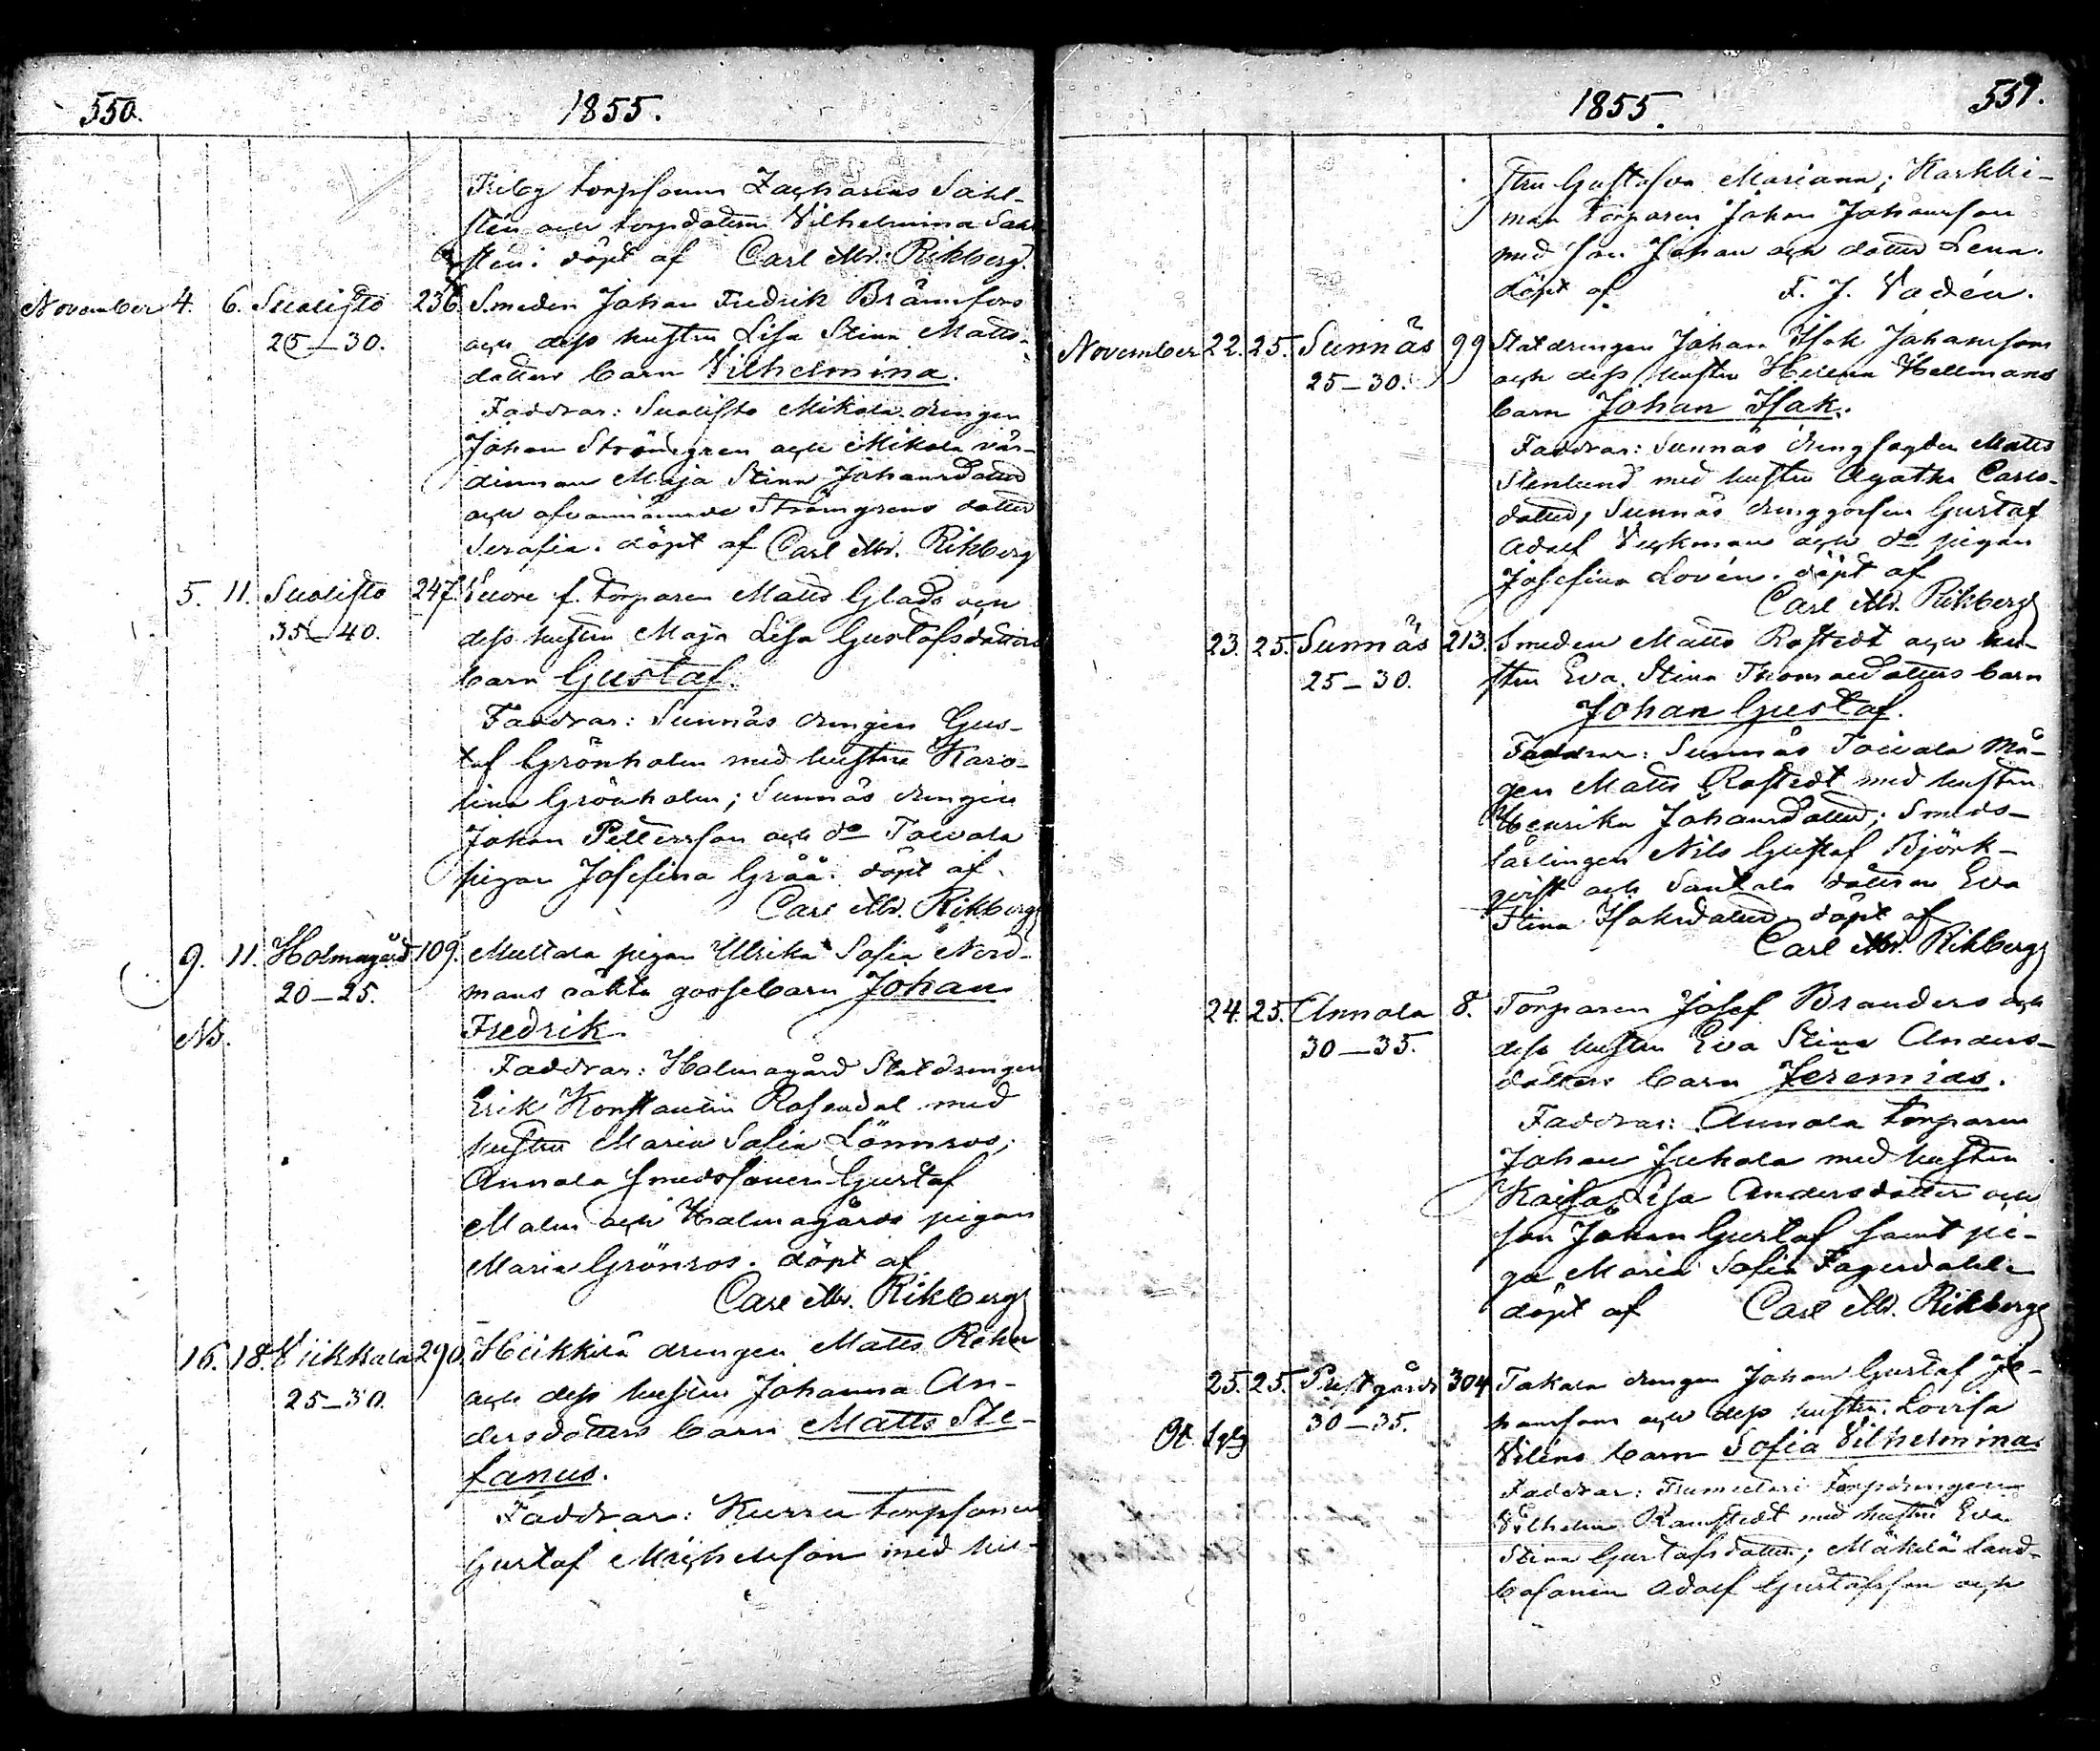 550.
1855.
torpsonen Zacharias Sahl-
sten och torpdottern Vilhelmina Sahl-
sten. döpt af Carl Mr. Rikberg.
November 4. 6. Sualisto 236. Smeden Johan Fredrik Brännfors
25–30. och dess hustru Lisa Stina Matts-
dotters barn Vilhelmina.
Faddrar: Sualisto Mikola drengen
Johan Strömgren och Mikola vär-
dinnan Maja Stina Johansdotter
och ofvannämnde Strömgrens dotter
Serafia. döpt af Carl Mr. Rikberg
5. 11. Sualisto 247. f. torparen Matts Glads och
35–40. dess hustru Maja Lisa Gustafsdotters
barn Gustaf.
Faddrar: Sunnäs drengen Gus-
taf Grönholm med hustru Karo-
lina Grönholm; Sunnäs drengen
Johan Pettersson och do Toivola
pigan Josefina Gråå. döpt af
Carl Mr. Rikberg
9. 11. Holmagård 109. Multala pigan Ulrika Sofia Nord-
20–25. mans oäkta gossebarn Johan
Nb. Fredrik.
Faddrar: Holmagård Statdrengen
Erik Konstantin Rosendal med
hustru Maria Sofia Lönnros;
Annala smedssonen Gustaf
Malm och Holmagårds pigan
Maria Grönros. döpt af
Carl Mr. Rikberg
16. 18. Viikkala 290. Heikkilä drengen Matts Rehn
25–30. och dess hustru Johanna An-
dersdotters barn Matts Ste-
fanus.
Faddrar: Kurru torpsonen
Gustaf Michelsson med hu-
1855.
551.
stru Gustafva Mariana; Karkki-
man torparen Johan Johansson
med son Johan och dotter Lena.
döpt af F. J. Vadén.
November 22. 25. Sunnäs 99 Statdrengen Johan Isak Johansson
25–30. och dess hustru Helena Hellmans
barn Johan Isak.
Faddrar: Sunnäs drengfogden Matts
Stenlund med hustru Agatha Carls-
dotter, Sunnäs dreng gossen Gustaf
Adolf Veckman och do pigan
Josefina Lovén. döpt af
Carl Mr. Rikberg
23. 25. Sunnäs 213. Smeden Matts Rostedt och hu-
25–30. stru Eva Stina Thomasdotters barn
Johan Gustaf.
Faddrar: Sunnäs Toivola Må-
gen Matts Rostedt med hustru
Henrika Johansdotter; Smeds-
lärlingen Nils Gustaf Björk-
qvist och Santala dottern Eva
Stina Isaksdotter. döpt af
Carl Mr. Rikberg
24. 25. Annala 8. Torparen Josef Branders och
30–35. dess hustru Eva Stina Anders-
dotters barn Jeremias.
Faddrar: Annala torparen
Johan Jukola med hustru
Kaisa Lisa Andersdotter och
son Johan Gustaf samt pi-
ga Maria Sofia Fagerdahl.
döpt af Carl Mr. Rikberg
25. 25. Prestgårds 304 Takala drengen Johan Gustaf Jo-
30–35. hansson och dess hustru Lovisa
Viléns barn Sofia Vilhelmina
Faddrar: Torpdrengen
Vilhelm Ramstedt med hustru Eva
Stina Gustafsdotter; Mäkilä land-
bosonen Adolf Gustafsson och